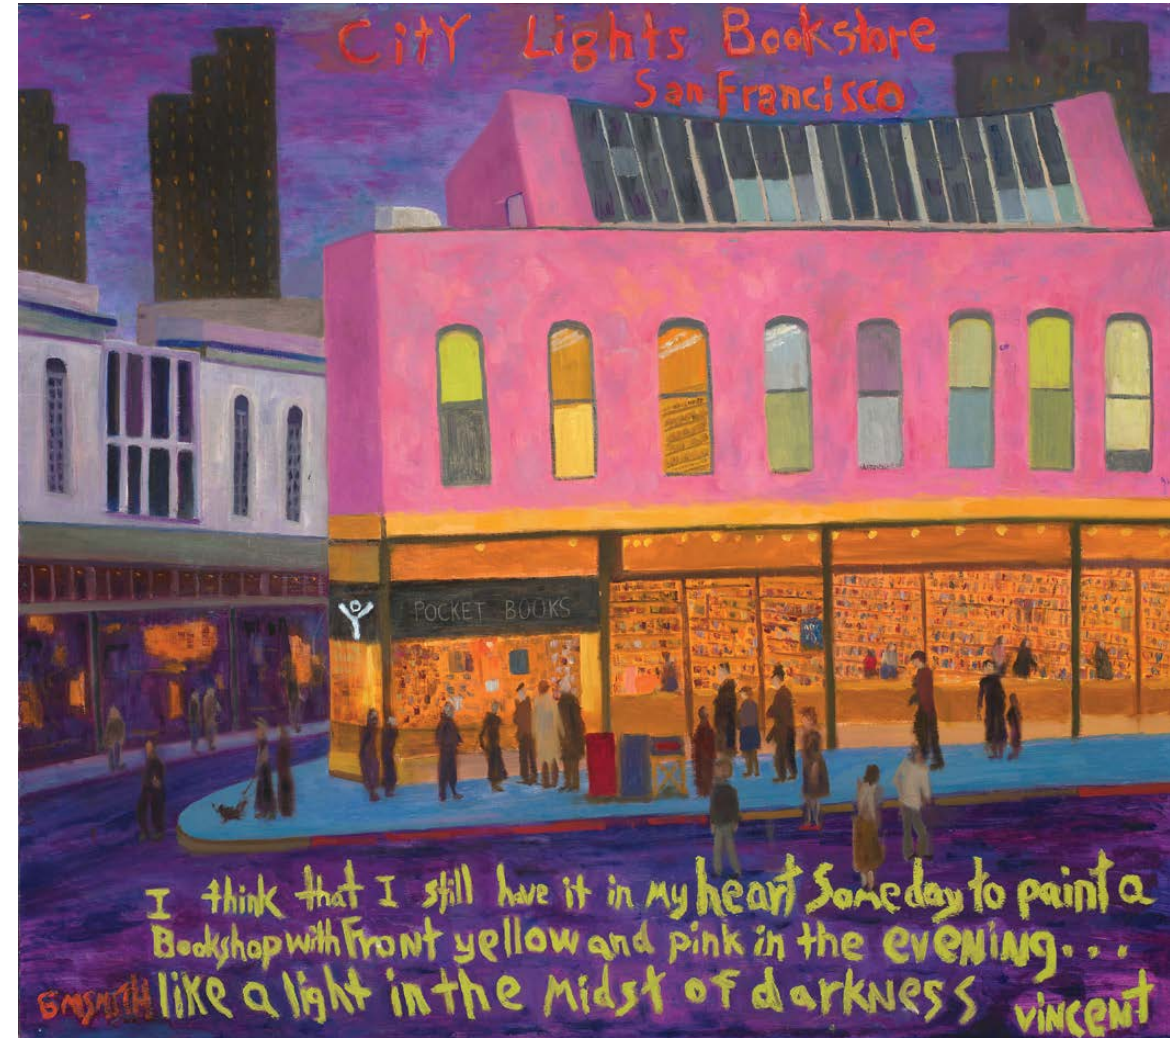 City Lights Bookstore
San Francisco
POCKET BOOKS
I think that I still have it in my heart Someday to paint a
Bookshop with Front yellow and pink in the evening...
like a light in the Midst of darkness
vincent